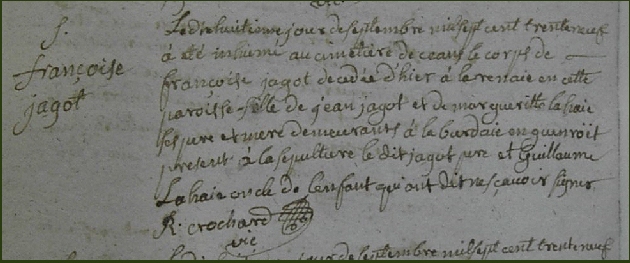 S.
françoise
jagot
Ledixhuitieme jour de septembre mil sept cent trente neuf
à été inhumé au cimetiere de ceans le corps de
françoise jagot decedée d'hier à la renaie en cette
paroisse fille de jean jagot et de margueritte lahaie
ses pere et mere demeurants à la bardaie en guinroit
present à la sepulture le dit jagot pere et Guillaume
Lahaie oncle de lenfant qui ont dit ne sçavoir signer
R. crochard
vic
jour de septembre mil sept cent trente neuf